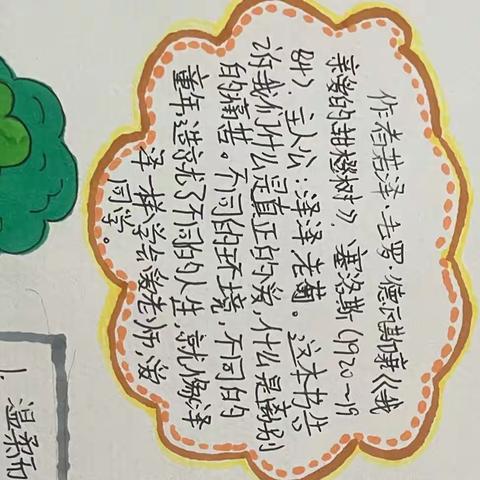 作者若泽·毛罗·德瓦斯康《我
亲爱的甜橙树》. 塞洛斯(1920~19
84). 主人公：泽泽老葡。这本书告
诉我们什么是真正的爱,什么是离别
的痛苦。不同的环境,不同的
童年造就了不同的人生,就像泽
泽一样学会爱老师,爱
同学。
1. 温柔而